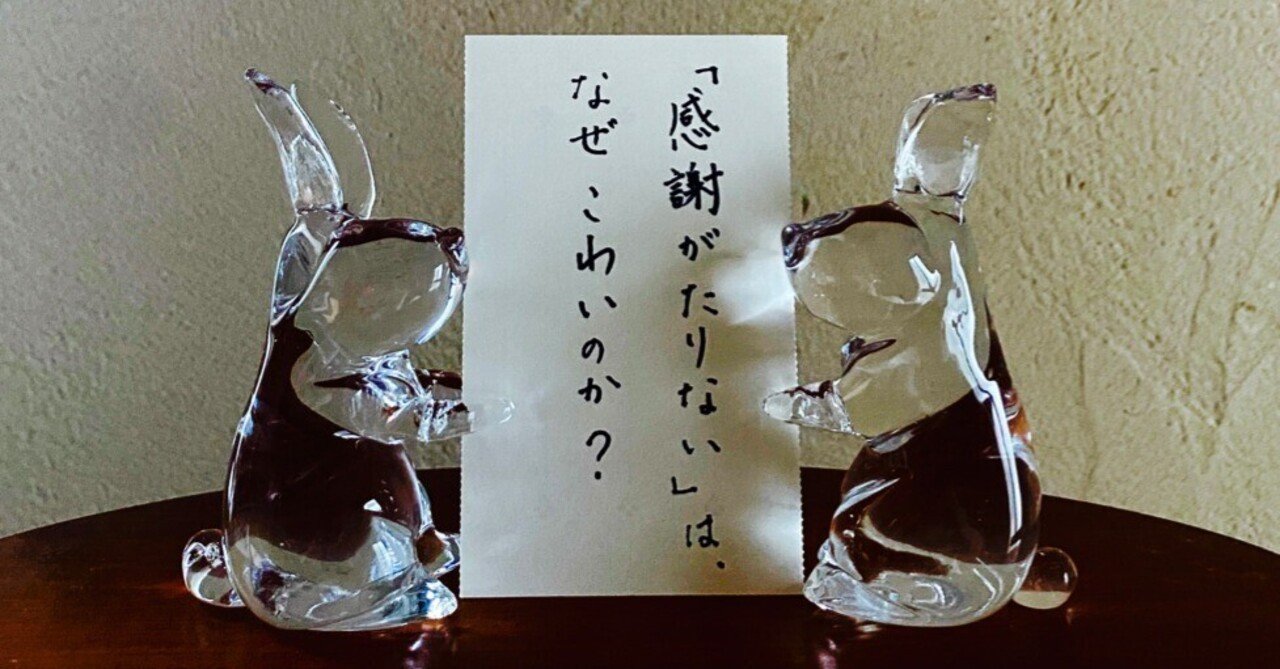 「感謝がたりない」は、
なぜこわいのか？